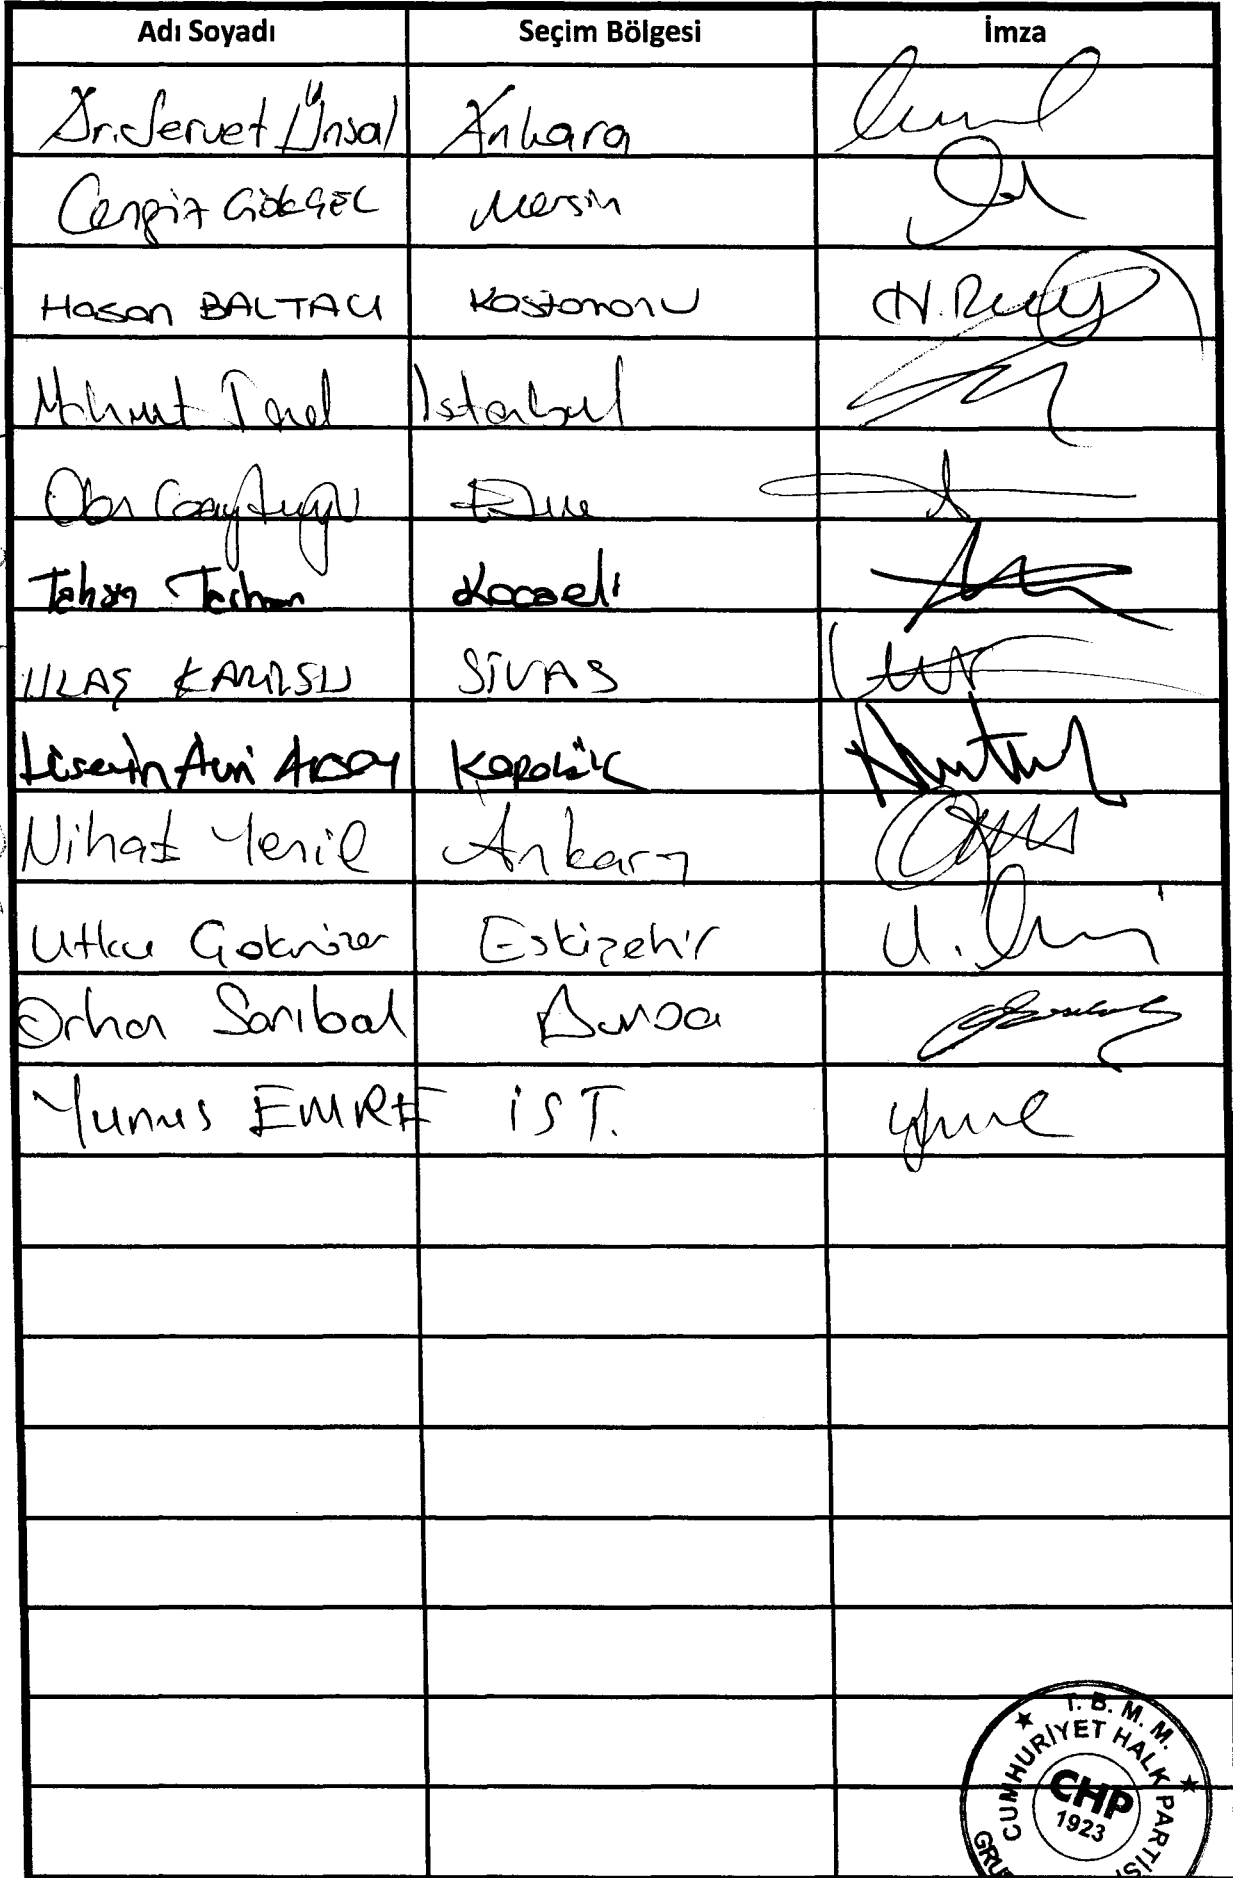 Adı Soyadı Seçim Bölgesi İmza
Dr. Servet Ünsal Ankara
Cengiz GÖKÇEL Mersin
Hasan BALTACI Kastamonu
Mahmut Tanal İstanbul
Okan Gaytancıoğlu Edirne
Tahsin Tarhan Kocaeli
ULAŞ KARASU SİVAS
Hüseyin Avni AKSOY Karabük
Nihat Yeşil Ankara
Utku Çakırözer Eskişehir
Orhan Sarıbal Bursa
Yunus EMRE İST.
T. B. M. M.
CUMHURİYET HALK PARTİSİ
CHP
1923